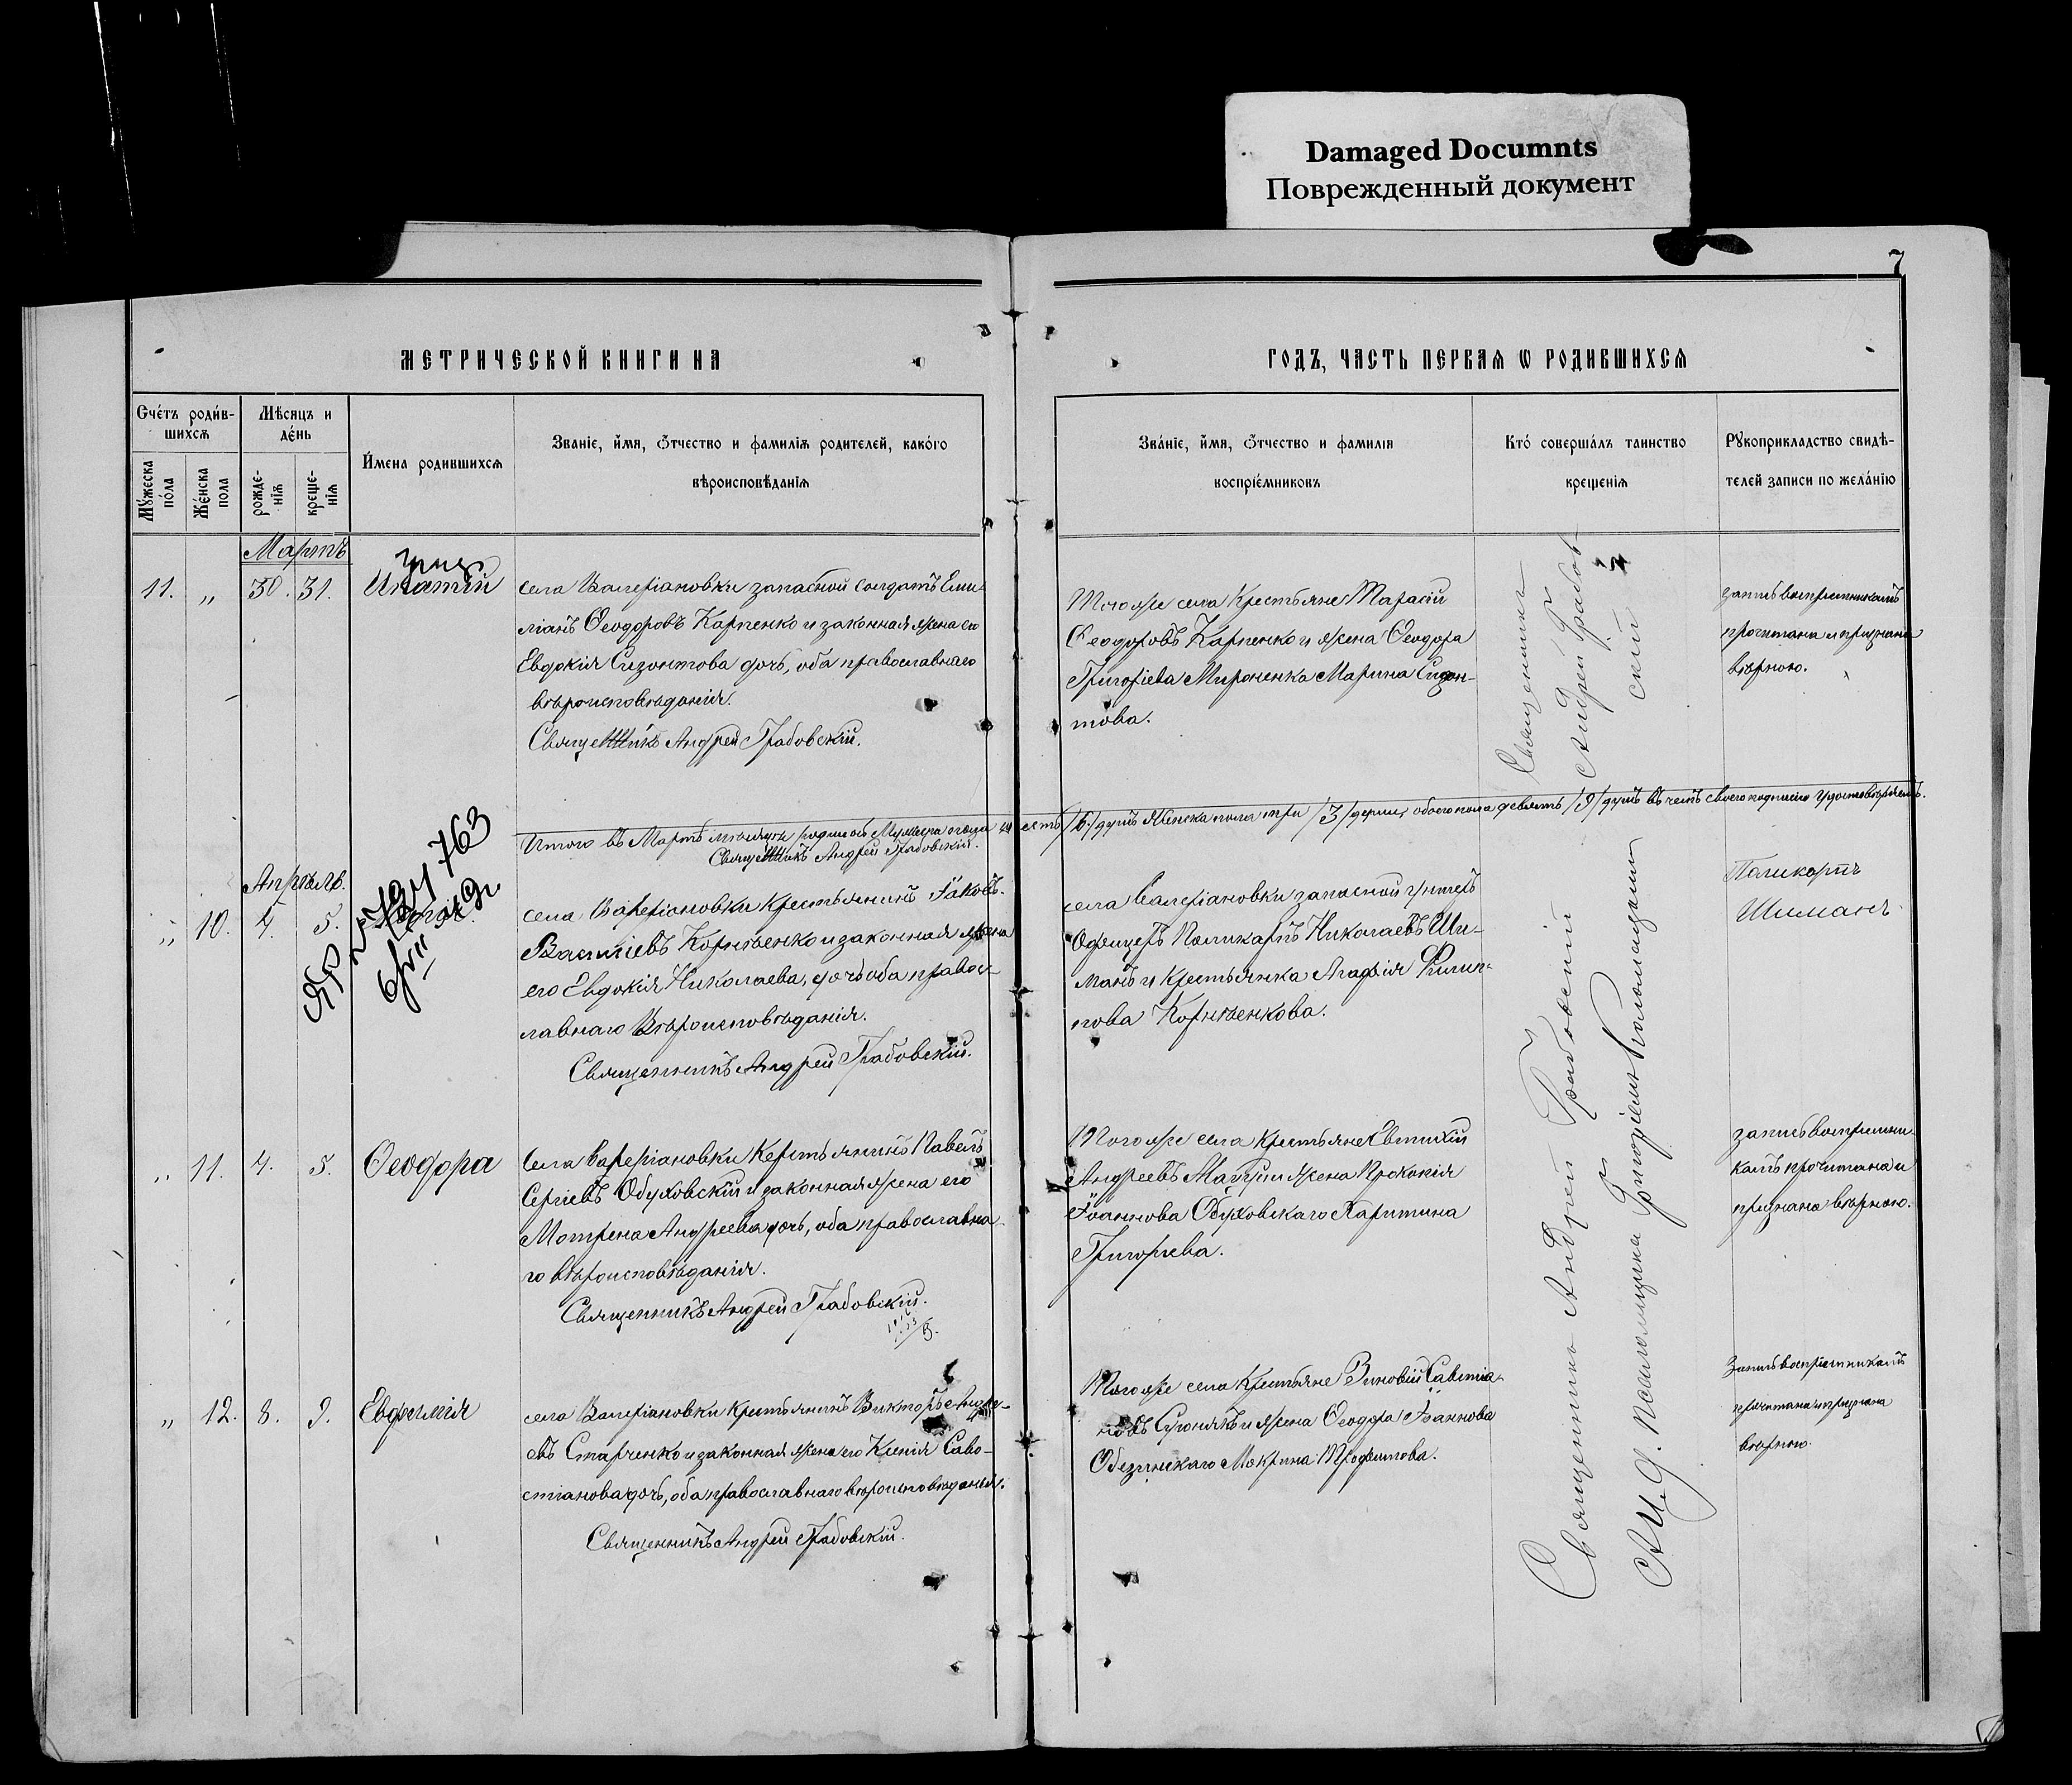 Damaged Documnts
Поврежденный документ
7
МЕТРИЧЕСКОЙ КНИГИ НА
ГОДЪ, ЧАСТЬ ПЕРВАЯ Ѡ РОДИВШИХСЯ
Счетъ родив-
шихся
Мѣсяцъ и
день
Мужеска
пола
Женска
пола
рожде-
нія
креще-
нія
Имена родившихся
Званіе, имя, отчество и фамилія родителей, какого
вѣроисповѣданія
Званіе, имя, отчество и фамилія
воспріемниковъ
Кто совершалъ таинство
крещенія
Рукоприкладство свидѣ-
телей записи по желанію
Мартъ
11. „ 30. 31. Ипатій
села Валеріановки запасной солдатъ Еми-
ліанъ Ѳеодоровъ Карпенко и законная жена его
Евдокія Сизонтова дочь, оба православнаго
вѣроисповѣданія.
Священникъ Андрей Грабовскій.
Того же села Крестьяне Тарасій
Ѳеодоровъ Карпенко и жена Ѳеодора
Григоріева Мироненка Марина Сизон-
това.
Священникъ
Андрей Грабов-
скій
запись воспріемникамъ
прочитана и признана
вѣрною.
Итого въ Мартѣ мѣсяцѣ родилось Мужеска пола шесть /6/ душъ Женска пола три /3/ души, обоего пола девять /9/ душъ въ чемъ своею подписью удостовѣряемъ.
Священникъ Андрей Грабовскій.
Апрѣль.
„ 10. 4. 5.
763
села Валеріановки Крестьянинъ Іаковъ
Васильевъ Корнѣенко и законная жена
его Евдокія Николаева, дочь оба правос-
лавнаго Вѣроисповѣданія.
Священникъ Андрей Грабовскій.
села Валеріановки запасной унтеръ
Офицеръ Поликарпъ Николаевъ Ши-
манъ и Крестьянка Агафія Филип-
пова Корнѣенкова.
Поликарпъ
Шиманъ
Священникъ Андрей Грабовскій
„ 11. 4. 5. Ѳеодора
Села Валеріановки Крестьянинъ Павелъ
Сергіевъ Обуховскій и законная жена его
Мотрена Андреева дочь, оба православна-
го вѣроисповѣданія.
Священникъ Андрей Грабовскій.
Того же села Крестьяне Евтихій
Андреевъ и жена Прокопія
Іоаннова Обуховскаго Харитина
Григорьева.
запись воспріемни-
камъ прочитана и
признана вѣрною.
„ 12. 8. 9. Евфимія
села Валеріановки Крестьянинъ Викторъ Андре-
евъ Старченко и законная жена его Ксенія Саво-
стіанова дочь, оба православнаго вѣроисповѣданія.
Священникъ Андрей Грабовскій.
Того же села Крестьяне Зиновій Савостіа-
новъ и жена Ѳеодора Іоаннова
Мокрина Трофимова.
Запись воспріемникамъ
прочитана и признана
вѣрною.